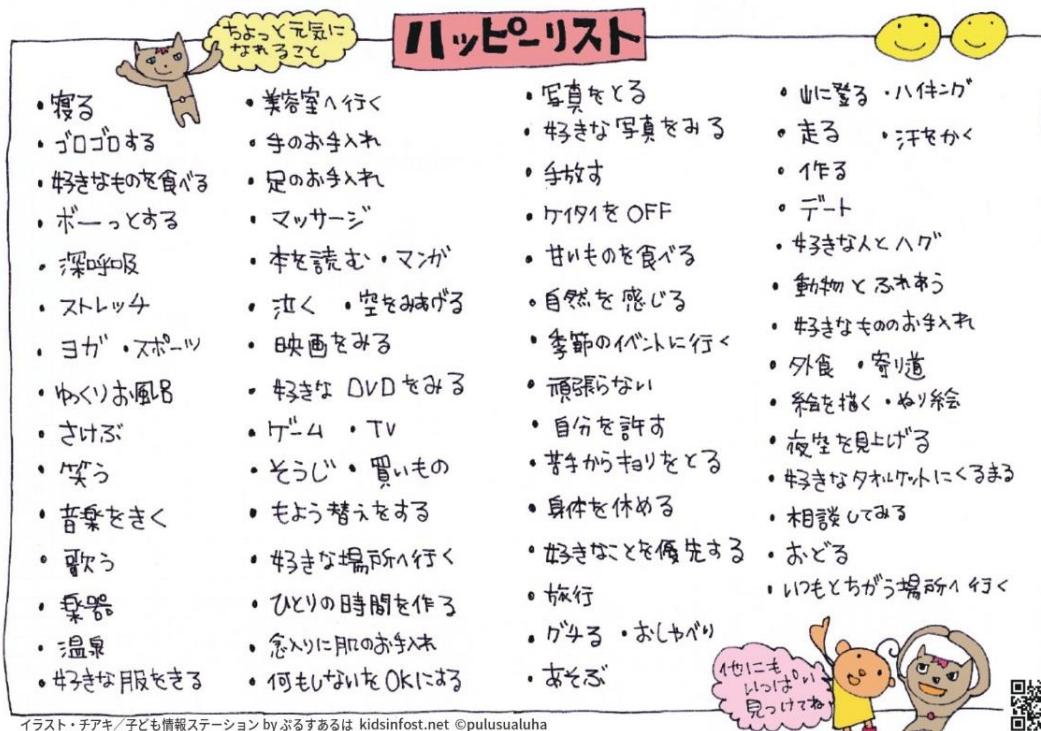 ちょっと元気に
なれること
ハッピーリスト
・寝る
・ゴロゴロする
・好きなものを食べる
・ボーっとする
・深呼吸
・ストレッチ
・ヨガ ・スポーツ
・ゆっくりお風呂
・さけぶ
・笑う
・音楽をきく
・歌う
・楽器
・温泉
・好きな服をきる
・美容室へ行く
・手のお手入れ
・足のお手入れ
・マッサージ
・本を読む ・マンガ
・泣く ・空をみあげる
・映画をみる
・好きな DVDをみる
・ゲーム ・TV
・そうじ ・買いもの
・もよう替えをする
・好きな場所へ行く
・ひとりの時間を作る
・念入りに肌のお手入れ
・何もしないをOKにする
・写真をとる
・好きな写真をみる
・手放す
・ケイタイをOFF
・甘いものを食べる
・自然を感じる
・季節のイベントに行く
・頑張らない
・自分を許す
・苦手からキョリをとる
・身体を休める
・好きなことを優先する
・旅行
・グチる ・おしゃべり
・あそぶ
・山に登る ・ハイキング
・走る ・汗をかく
・作る
・デート
・好きな人とハグ
・動物とふれあう
・好きなもののお手入れ
・外食 ・寄り道
・絵を描く ・ぬり絵
・夜空を見上げる
・好きなタオルケットにくるまる
・相談してみる
・おどる
・いつもとちがう場所へ行く
他にも
いっぱい
見つけてね
イラスト・チアキ／子ども情報ステーション by ぷるすあるは kidsinfost.net ©pulusualuha